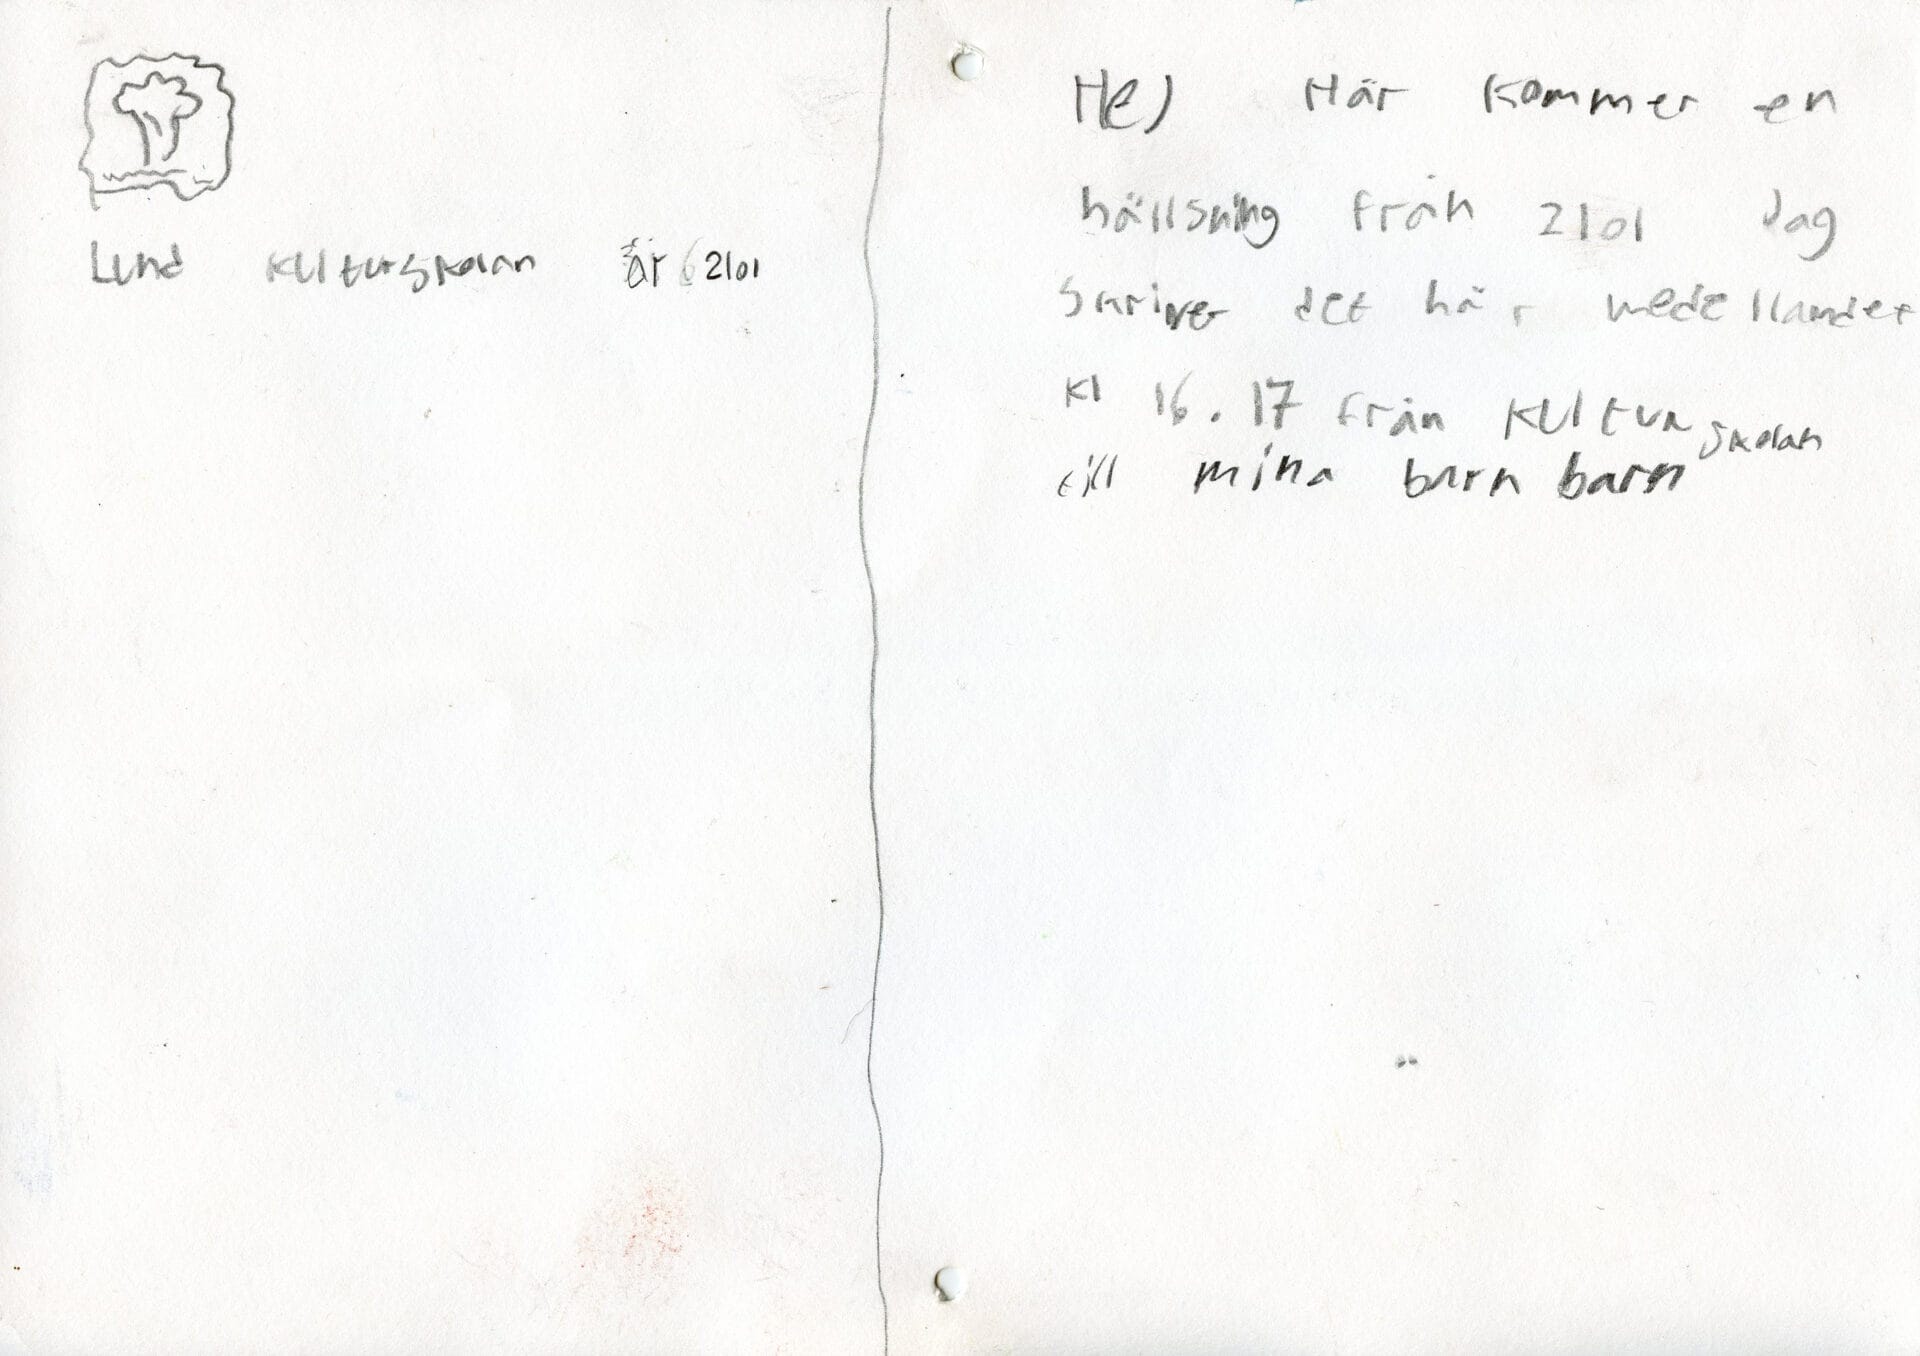 Lund kulturskolan år 2101
Hej Här kommer en
hällsning från 2101 Jag
skriver det här medellandet
kl 16.17 från kultur skolan
till mina barn barn